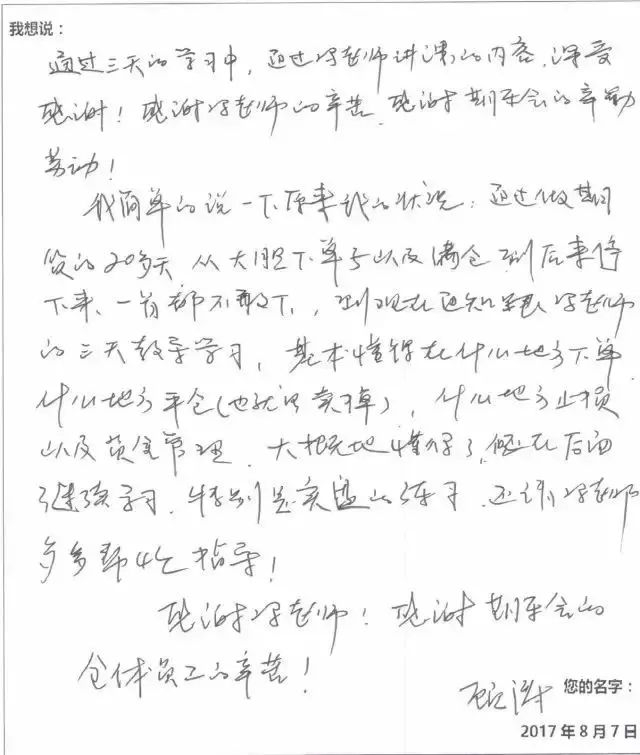 我想说：
通过三天的学习中，通过冯老师讲课的内容，深受
感谢！感谢冯老师的辛苦，感谢期乐会的辛勤
劳动！
我简单的说一下原来我的状况：通过做期
货的20多天，从大胆下单子以及满仓到后来停
下来、一首都不敢下，到现在通知冯老师
的三天教导学习，基本懂得在什么地方下单
什么地方平仓（也就是卖掉），什么地方止损
以及资金管理。大概地懂得了，但在后面
继续学习，特别是实盘的练习，还请冯老师
多多帮忙指导！
感谢冯老师！感谢期乐会的
全体员工的辛苦！
您的名字：
2017年8月7日